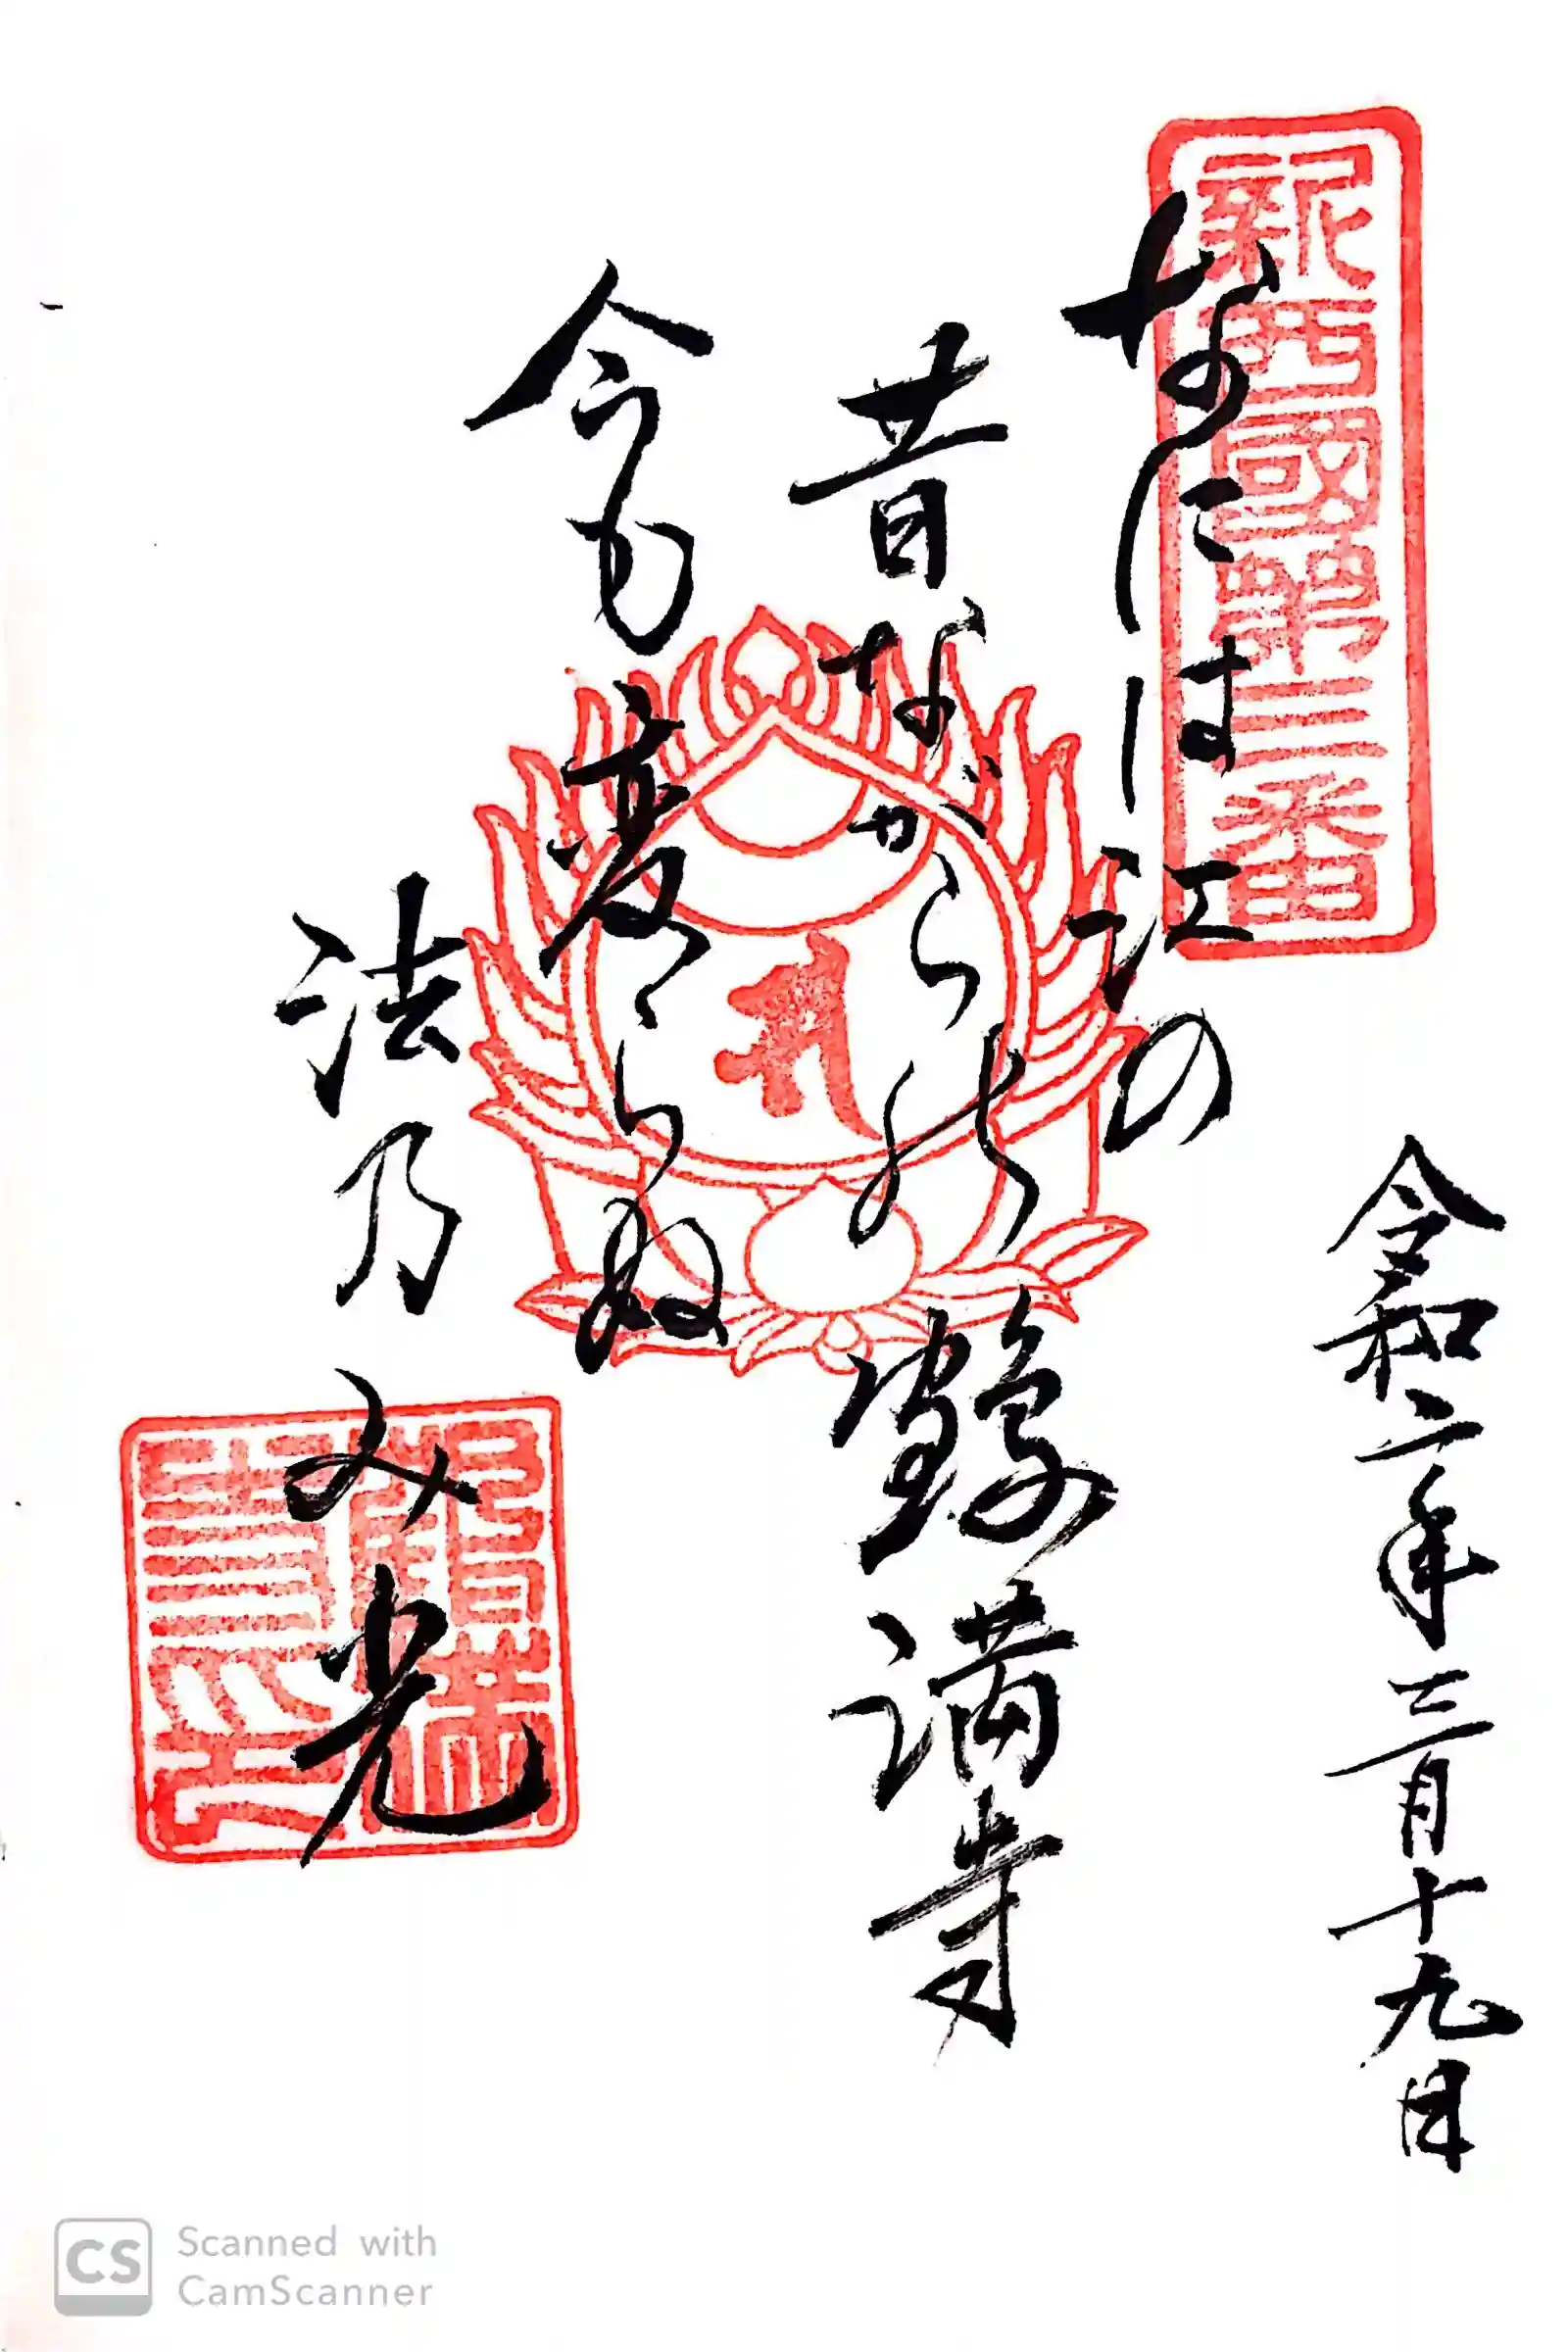 新西國第三番
なには江の
昔ながらの鶴満寺
今も変らぬ
法乃み光
令和二年三月十九日
CS Scanned with
CamScanner